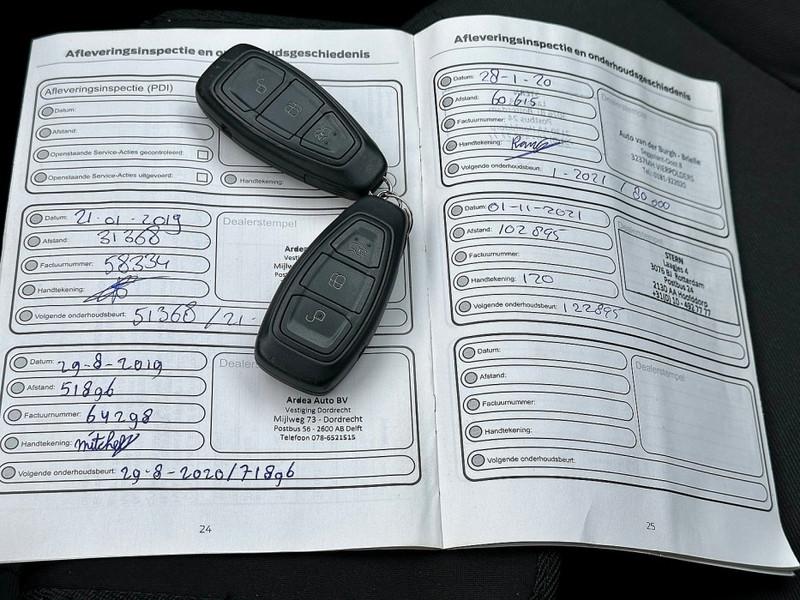 Afleveringsinspectie en onderhoudsgeschiedenis
Afleveringsinspectie (PDI)
Datum:
Afstand:
Openstaande Service-Acties gecontroleerd:
Openstaande Service-Acties uitgevoerd:
Handtekening:
Datum: 21-01-2019
Afstand: 31368
Factuurnummer: 58334
Handtekening:
Volgende onderhoudsbeurt: 51368 / 21-
Dealerstempel
Datum: 29-8-2019
Afstand: 51896
Factuurnummer: 64298
Handtekening:
Volgende onderhoudsbeurt: 29-8-2020/71896
Ardea Auto BV
Vestiging Dordrecht
Mijlweg 73 - Dordrecht
Postbus 56 - 2600 AB Delft
Telefoon 078-6521515
24
Afleveringsinspectie en onderhoudsgeschiedenis
Datum: 28-1-20
Afstand: 60615
Factuurnummer:
Handtekening:
Volgende onderhoudsbeurt: 1-2021 / 80.000
Dealerstempel
Auto van der Burgh - Brielle
Seggelant-Oost 8
3237MH VIERPOLDERS
Tel.: 0181-322020
Datum: 01-11-2021
Afstand: 102895
Factuurnummer:
Handtekening: 120
Volgende onderhoudsbeurt: 122895
STERN
Laagjes 4
3076 BJ Rotterdam
Postbus 24
2130 AA Hoofddorp
+31(0)10 - 492 77 77
Datum:
Afstand:
Factuurnummer:
Handtekening:
Volgende onderhoudsbeurt:
Dealerstempel
25